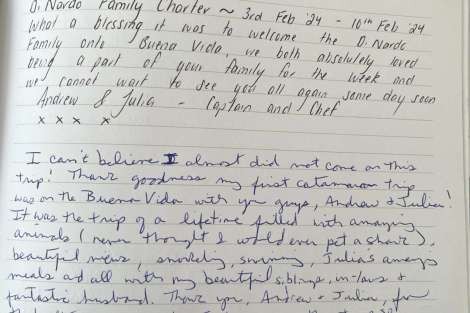 Di Nardo Family Charter ~ 3rd Feb '24 - 10th Feb '24
What a blessing it was to welcome the Di Nardo
Family onto Buena Vida, we both absolutely loved
being a part of your family for the week and
we cannot wait to see you all again some day soon
Andrew & Julia - Captain and Chef
x x x x
I can't believe I almost did not come on this
trip! Thank goodness my first catamaran trip
was on the Buena Vida with you guys, Andrew & Julia!
It was the trip of a lifetime filled with amazing
animals (never thought I would ever pet a shark),
beautiful views, snorkeling, swimming, Julia's amazing
meals and all with my beautiful siblings, in-laws &
fantastic husband. Thank you, Andrew & Julia, for